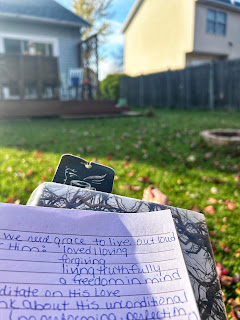 we need grace to live out loud
Him: loved/loving
forgiving
living truthfully
a freedom in mind
ditate on His love
nk about His unconditional